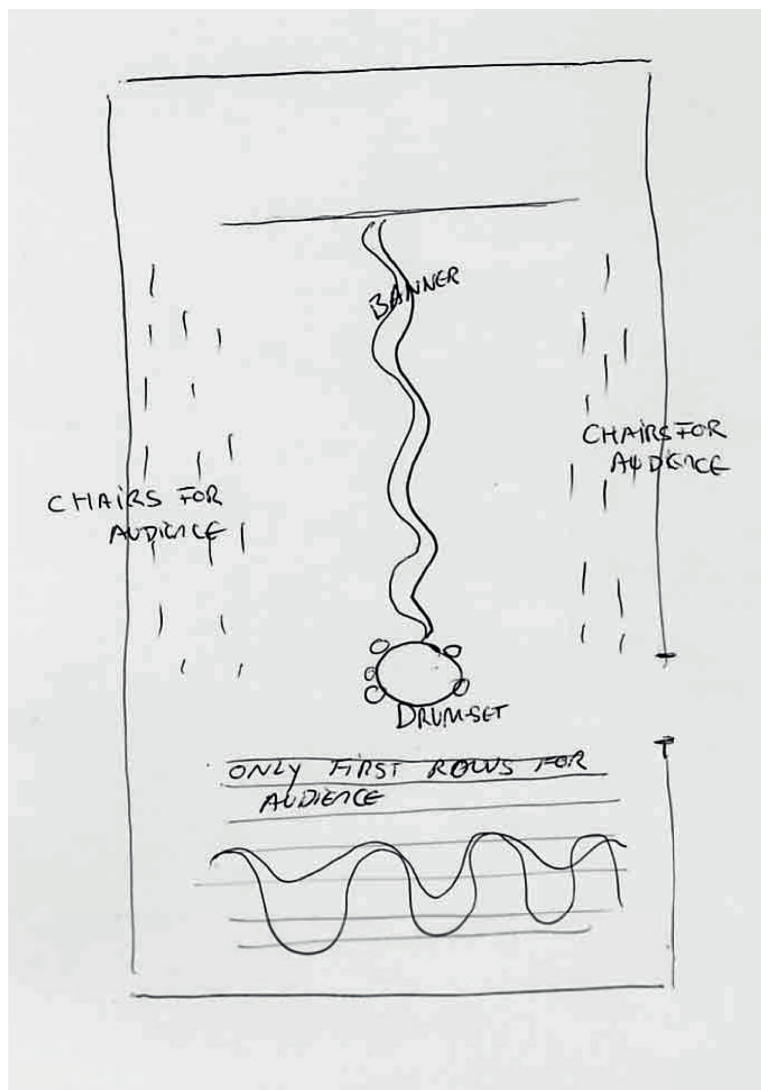 BANNER
CHAIRS FOR
AUDIENCE
CHAIRS FOR
AUDIENCE
DRUM-SET
ONLY FIRST ROWS FOR
AUDIENCE